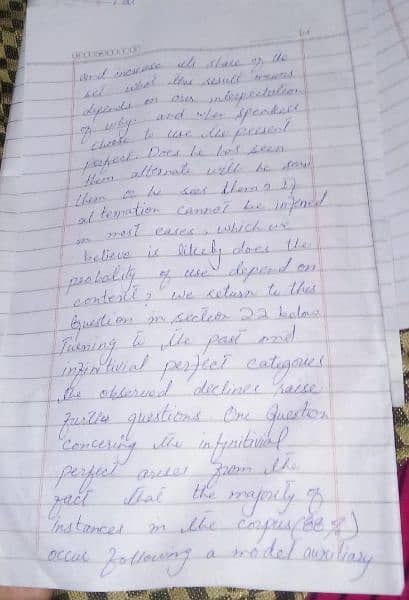 and increase its share of the
set what this result means
depends on our interpretation
of why and when speakers
choose to use the present
perfect. Does he has seen
them alternate with he saw
them or he sees them? If
alternation cannot be infered
in most cases, which we
believe is likely does the
probality of use depend on
content? we return to this
Question in section 2.2 below
Turning to the past and
infinitivial perfect categories
the observed declines raise
further questions. One Question
concering the infinitivial
perfect arises from the
fact that the majority of
instances in the corpus (88%)
occur following a model auxiliary